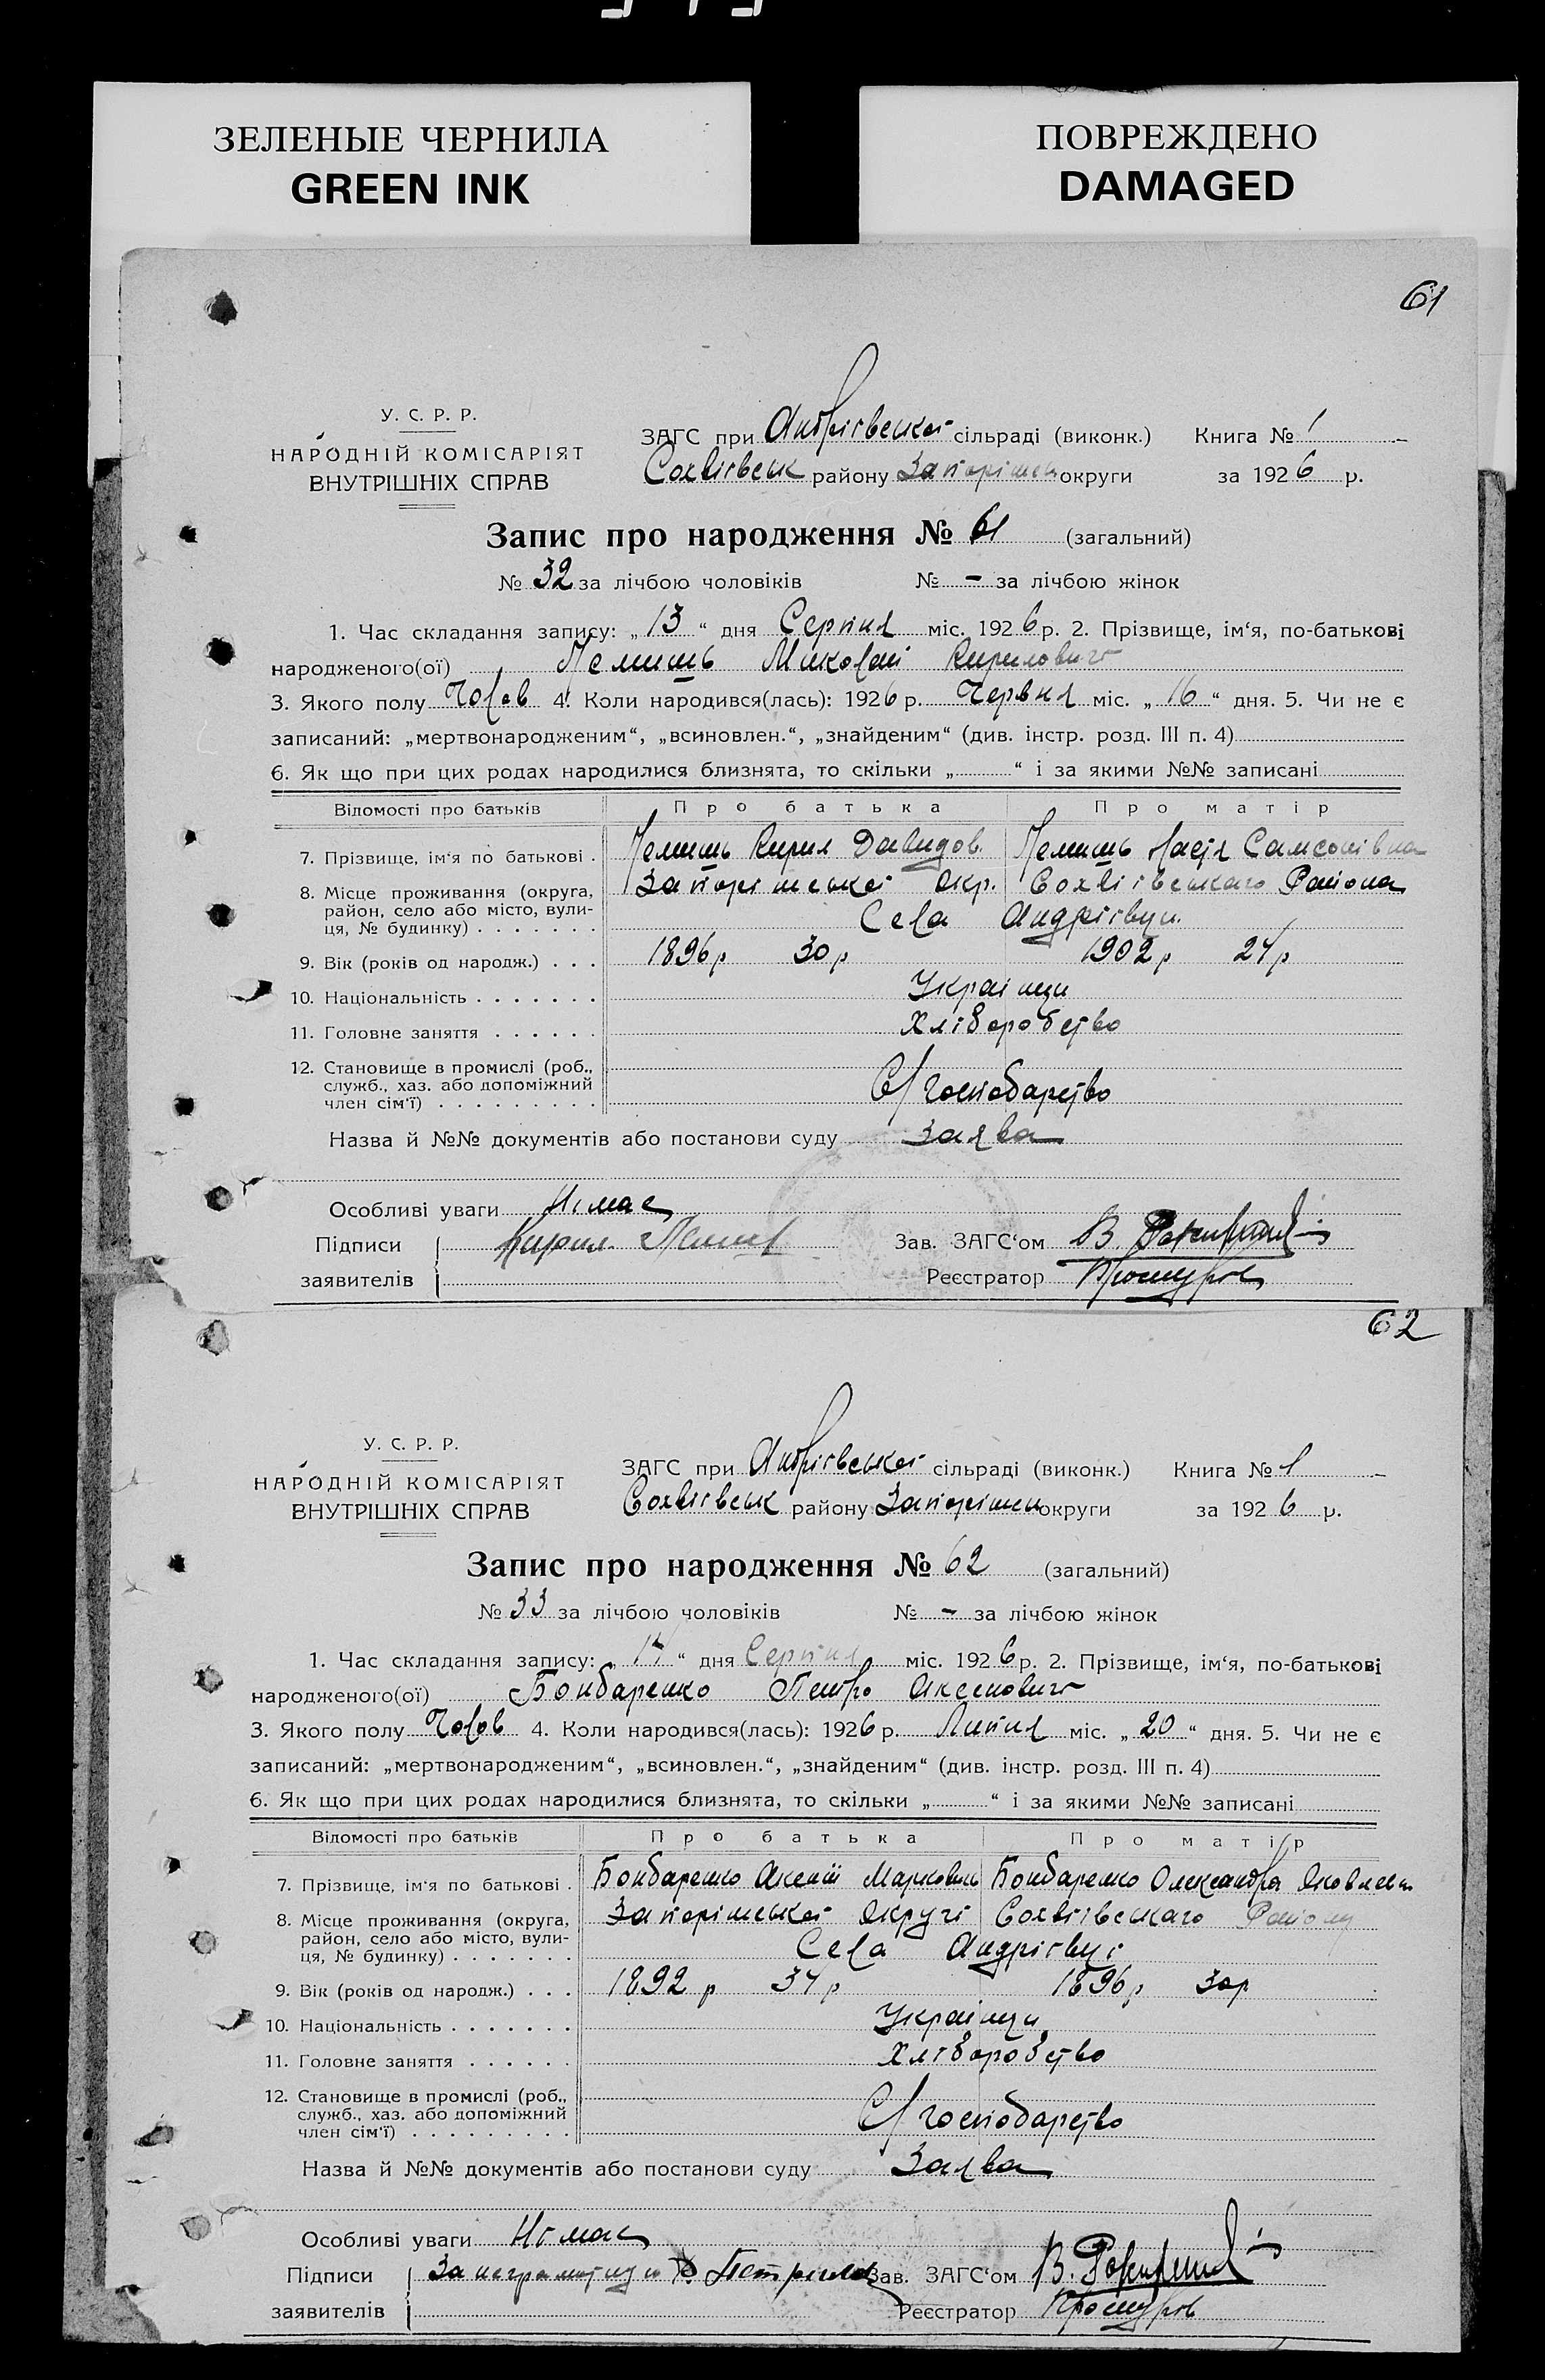 ЗЕЛЕНЫЕ ЧЕРНИЛА
GREEN INK
ПОВРЕЖДЕНО
DAMAGED
61
У. С. Р. Р.
НАРОДНІЙ КОМІСАРІЯТ
ВНУТРІШНІХ СПРАВ
ЗАГС при Андрієвській сільраді (виконк.) Книга № 1
Софіївськ району Запоріжськ округи за 1926 р.
Запис про народження № 61 (загальний)
№ 32 за лічбою чоловіків № - за лічбою жінок
1. Час складання запису: „13“ дня Серпня міс. 1926 р. 2. Прізвище, ім‘я, по-батькові
народженого(ої) Миколай Кирилович
3. Якого полу Чолов 4. Коли народився(лась): 1926 р. Червня міс. „16“ дня. 5. Чи не є
записаний: „мертвонародженим“, „всиновлен.“, „знайденим“ (див. інстр. розд. III п. 4)
6. Як що при цих родах народилися близнята, то скільки „ “ і за якими №№ записані
Відомості про батьків Про батька Про матір
7. Прізвище, ім‘я по батькові . Кирил Давидов. Настя Самсонівна
8. Місце проживання (округа, район, село або місто, вулиця, № будинку) Запоріжської Окр. Софіївського Района
Села Андріївци.
9. Вік (років од народж.) . . . 1896 р 30 р 1902 р 24 р
10. Національність . . . . . . . Українци
11. Головне заняття . . . . . . Хліборобство
12. Становище в промислі (роб., служб., хаз. або допоміжний член сім‘ї) С/господарство
Назва й №№ документів або постанови суду Заява
Особливі уваги Немає
Підписи Кирил Зав. ЗАГС‘ом В.
заявителів Реєстратор
62
У. С. Р. Р.
НАРОДНІЙ КОМІСАРІЯТ
ВНУТРІШНІХ СПРАВ
ЗАГС при Андрієвській сільраді (виконк.) Книга № 1
Софіївськ району Запоріжськ округи за 1926 р.
Запис про народження № 62 (загальний)
№ 33 за лічбою чоловіків № - за лічбою жінок
1. Час складання запису: „ “ дня Серпня міс. 1926 р. 2. Прізвище, ім‘я, по-батькові
народженого(ої) Бондаренко Петро Аксенович
3. Якого полу Чолов 4. Коли народився(лась): 1926 р. Липня міс. „20“ дня. 5. Чи не є
записаний: „мертвонародженим“, „всиновлен.“, „знайденим“ (див. інстр. розд. III п. 4)
6. Як що при цих родах народилися близнята, то скільки „ “ і за якими №№ записані
Відомості про батьків Про батька Про матір
7. Прізвище, ім‘я по батькові . Бондаренко Аксений Маркович Бондаренко Олександра Яковлевн
8. Місце проживання (округа, район, село або місто, вулиця, № будинку) Запоріжської Округі Софіївського Району
Села Андріївці
9. Вік (років од народж.) . . . 1892 р 34 р 1896 р 30 р
10. Національність . . . . . . . Українци
11. Головне заняття . . . . . . Хліборобство
12. Становище в промислі (роб., служб., хаз. або допоміжний член сім‘ї) С/господарство
Назва й №№ документів або постанови суду Заява
Особливі уваги Немає
Підписи За неграмотну Зав. ЗАГС‘ом В.
заявителів Реєстратор